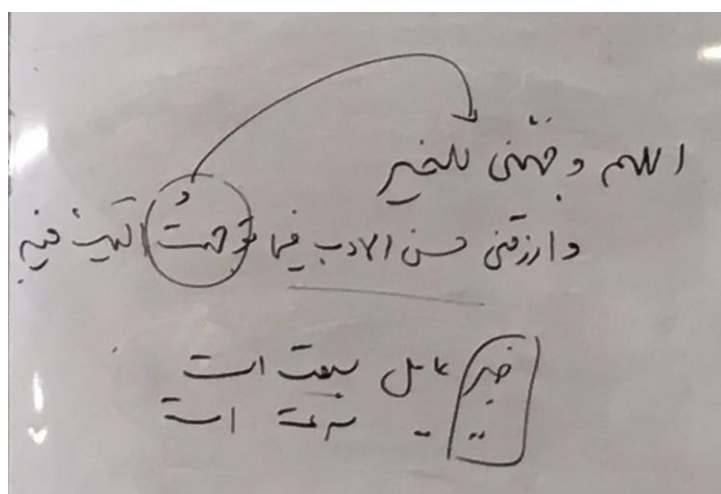 اللهم وجّهنی للخیر
وارزقنی حسن الادب فیما توجهتُ الیک فیه
خیر عامل سبقت است
〃 〃 سرعت است